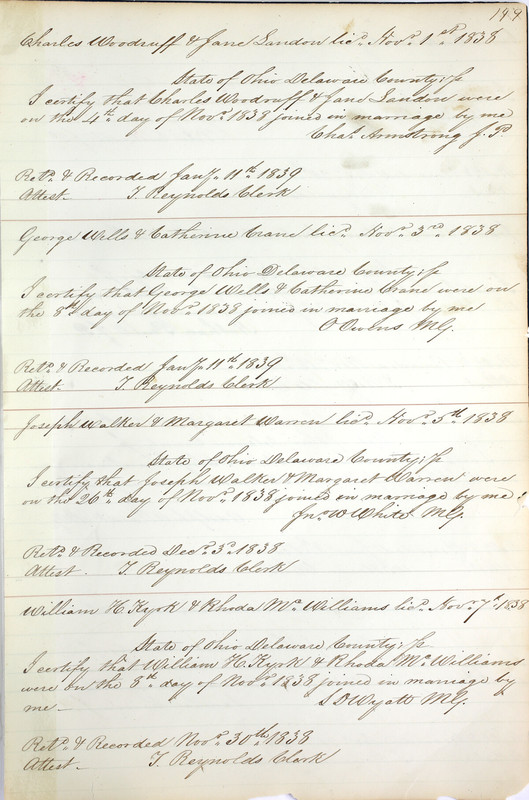 149
Charles Woodruff & Jane Landon licd. Novr. 1st 1838
State of Ohio Delaware County; ss
I certify that Charles Woodruff & Jane Landon were
on the 4th day of Novr. 1838 joined in marriage by me
Chas. Armstrong J.P.
Retd. & Recorded Jany. 11th 1839
Attest. T. Reynolds Clerk
George Wells & Catherine Crane licd. Novr. 3rd. 1838
State of Ohio Delaware County; ss
I certify that George Wells & Catherine Crane were on
the 8th day of Novr. 1838 joined in marriage by me
O Owens M.G.
Retd. & Recorded Jany. 11th 1839
Attest. T. Reynolds Clerk
Joseph Walker & Margaret Warren licd. Novr. 5th 1838
State of Ohio Delaware County; ss
I certify that Joseph Walker & Margaret Warren were
on the 26th day of Novr. 1838 joined in marriage by me
Jno. W White M.G.
Retd. & Recorded Decr. 3d. 1838
Attest. T. Reynolds Clerk
William H. Kyrk & Rhoda Mc. Williams licd. Novr. 7th 1838
State of Ohio Delaware County; ss
I certify that William H. Kyrk & Rhoda Mc. Williams
were on the 8th day of Novr. 1838 joined in marriage by
me - S D Wyatt M.G.
Retd. & Recorded Novr. 30th 1838
Attest. T. Reynolds Clerk